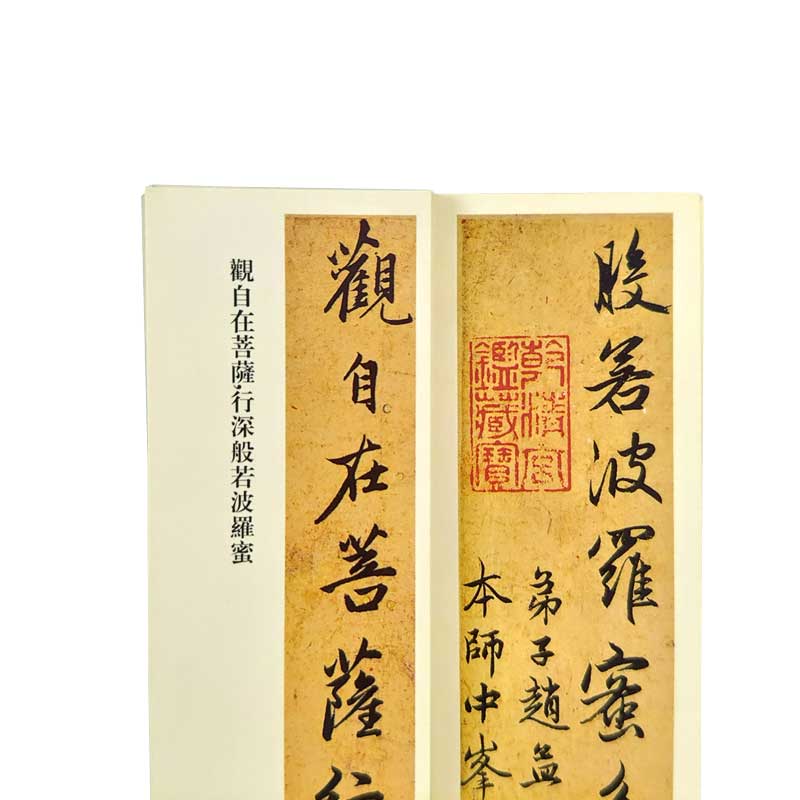 般若波羅蜜
乾清宮
鑑藏寶
弟子趙孟
本師中峯
觀自在菩薩行
觀自在菩薩·行深般若波羅蜜